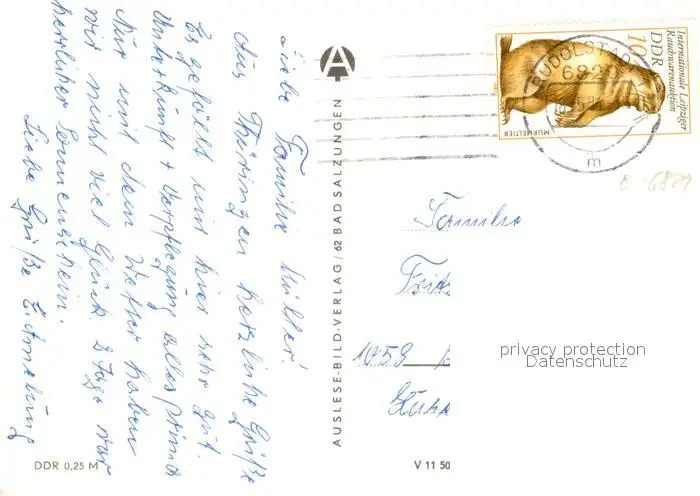 Liebe Familie Müller!
Aus Thüringen herzliche Grüße
Es gefällt uns hier sehr gut.
Unterkunft + Verpflegung alles prima
Nur mit dem Wetter haben
wir nicht viel Glück 2 Tage war
herrlicher Sonnenschein.
Liebe Grüße E.
DDR 0,25 M
AUSLESE-BILD-VERLAG / 62 BAD SALZUNGEN
V 11 50
Internationale Leipziger
Rauchwarenauktion
DDR
10
MURMELTIER
RUDOLSTADT
6820
m
Familie
Fritz
1059
privacy protection
Datenschutz